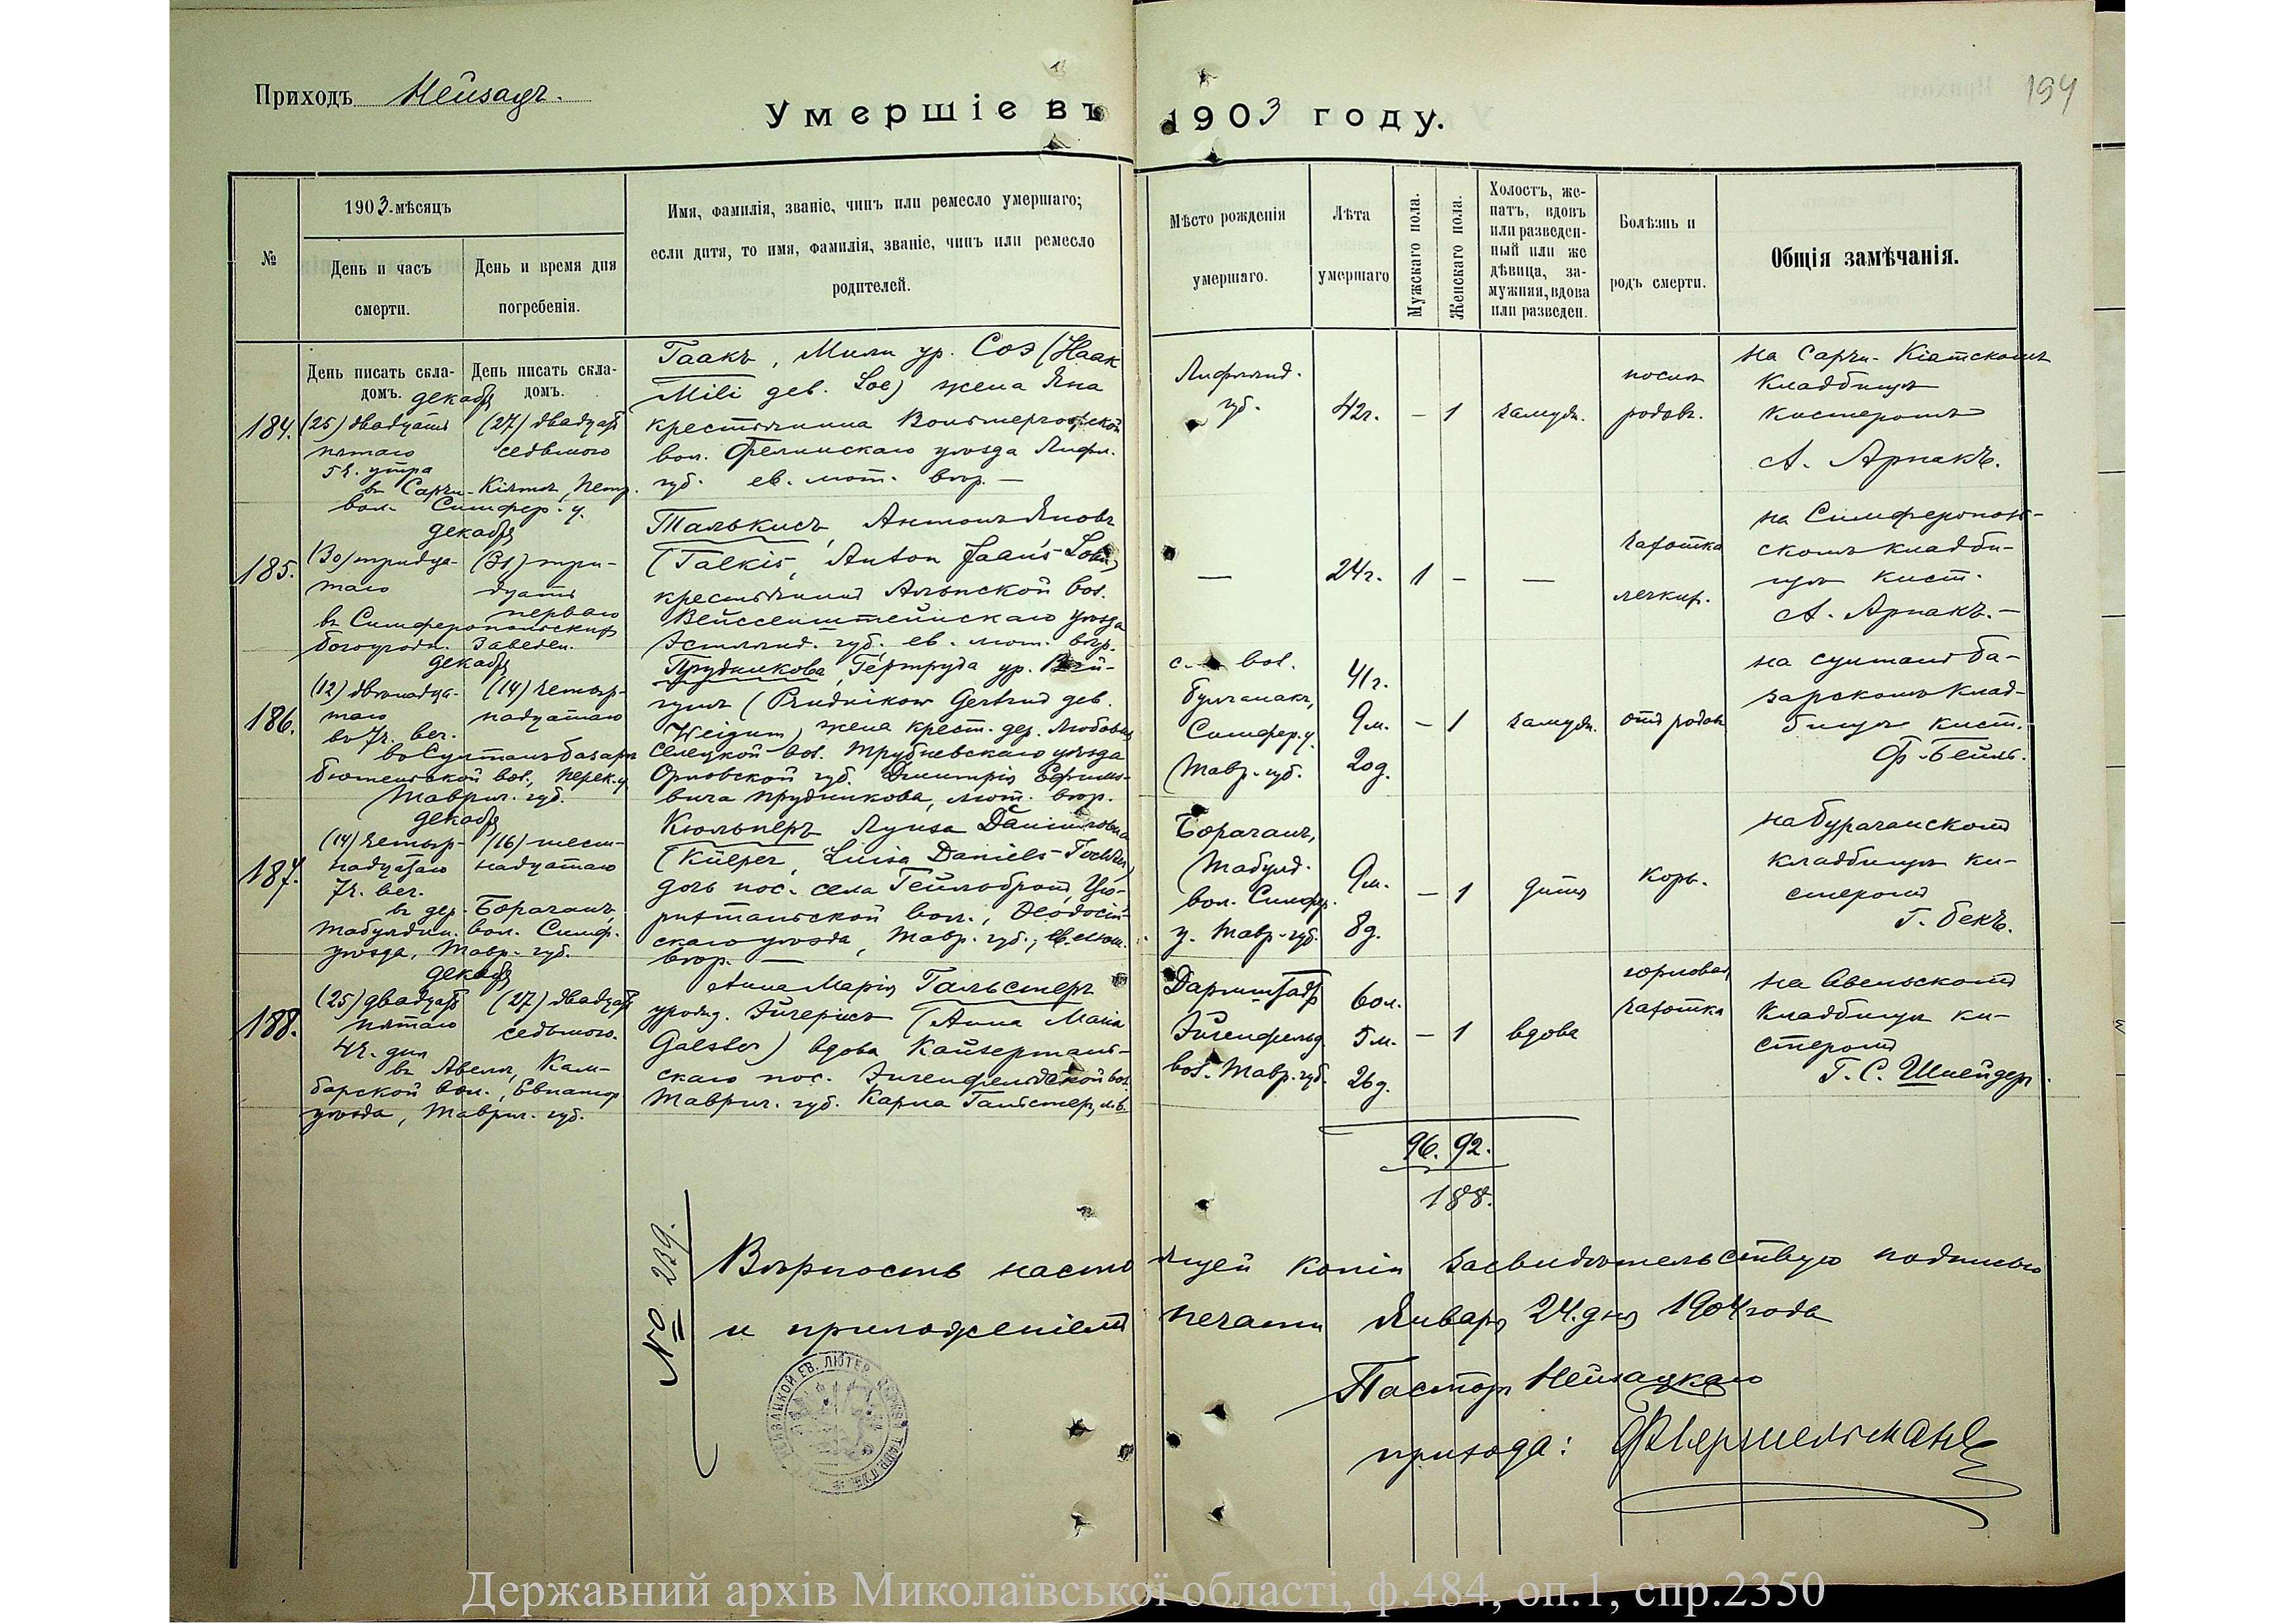 Приходъ Нейзацъ.
194
Умершіе въ 1903 году.
№
1903 мѣсяцъ
День и часъ
смерти.
День и время дня
погребенія.
Имя, фамилія, званіе, чинъ или ремесло умершаго;
если дитя, то имя, фамилія, званіе, чинъ или ремесло
родителей.
Мѣсто рожденія
умершаго.
Лѣта
умершаго
Мужскаго пола.
Женскаго пола.
Холостъ, же-
натъ, вдовъ
или разведен-
ный или же
дѣвица, за-
мужняя, вдова
или разведен.
Болѣзнь и
родъ смерти.
Общія замѣчанія.
День писать скла-
домъ.
День писать скла-
домъ.
декабр
184.
(25) двадцать
пятаго
5 ч. утра
(27) двадцать
седьмого
въ Сарчи-Кіятъ,
вол. Симфер. у.
Гаакъ, Мили ур. Соэ (Haak
Mili geb. Soe) жена Яна
крестьянина
вол. Феллинскаго уѣзда Лифл.
губ. ев. лют. вѣр. —
Лифлянд.
губ.
42 г.
— 1
замужн.
послѣ
родовъ.
на Сарчи-Кіятскомъ
кладбищѣ
кистеромъ
А. Арнакъ.
декабр
185.
(30) тридца-
таго
(31) три-
дцать
перваго
въ Симферопольскихъ
богоугодн. заведен.
Талькисъ, Антонъ Яновъ
(Talkis, Anton Jaan's-Sohn)
крестьянинъ Альпской вол.
Вейссенштейнскаго уѣзда
Эстлянд. губ. ев. лют. вѣр.
—
24 г.
1 —
—
чахотка
легких.
на Симферополь-
скомъ кладби-
щѣ кист.
А. Арнакъ. —
декабр
186.
(12) двѣнадца-
таго
въ 7 ч. веч.
(14) четыр-
надцатаго
въ Султанъ базаръ
вол., Перек. у.
Таврич. губ.
Прудникова, Гертруда ур. Вей-
гумъ (Prudnikow Gertrud geb.
Weigum) жена крест. дер.
Селецкой вол. Трубчевскаго уѣзда
Орловской губ. Дмитрія Ефимо-
вича Прудникова, лют. вѣр.
вол.
Булганакъ,
Симфер. у.
Тавр. губ.
41 г.
9 м.
20 д.
— 1
замужн.
отъ родов
на Султанъ ба-
зарскомъ клад-
бищѣ кист.
Ф. Бейль.
декабр
187.
(14) четыр-
надцатаго
7 ч. веч.
(16) шест-
надцатаго
въ дер. Борачанъ,
Табулдин. вол. Симф.
уѣзда, Тавр. губ.
Кюльперъ Луиза Даніиловна
(Külper, Luisa Daniels-Tochter)
дочь пос. села Гейльбронъ, Цю-
рихтальской вол., Ѳеодосій-
скаго уѣзда, Тавр. губ., ев. лют.
вѣр. —
Борачанъ,
Табулд.
вол. Симфер.
у. Тавр. губ.
9 м.
8 д.
— 1
дитя
корь.
на Бурачанскомъ
кладбищѣ ки-
стеромъ
Г. Бекъ.
декабр
188.
(25) двадцать
пятаго
4 ч. дня
(27) двадцать
седьмого.
въ Авель, Кам-
барской вол., Евпатор
уѣзда, Таврич. губ.
Анна Марія Гальстеръ
урожд. (Anna Maria
Galster) вдова Кайзерталь-
скаго пос. Эйгенфельдской вол.
Таврич. губ. Карла Гальстеръ, лют.
Дармштадтъ
Эйгенфельд
вол. Тавр. губ.
60 л.
5 м.
26 д.
— 1
вдова
горловая
чахотка
на Авельскомъ
кладбищѣ ки-
стеромъ
Г. С. Шнейдеръ.
96. 92.
188.
№ 239.
Вѣрность настоящей копіи засвидѣтельствую подписью
и приложеніемъ печати Января 24. дня 1904 года
Пасторъ Нейзацкаго
прихода:
Державний архів Миколаївської області, ф.484, оп.1, спр.2350